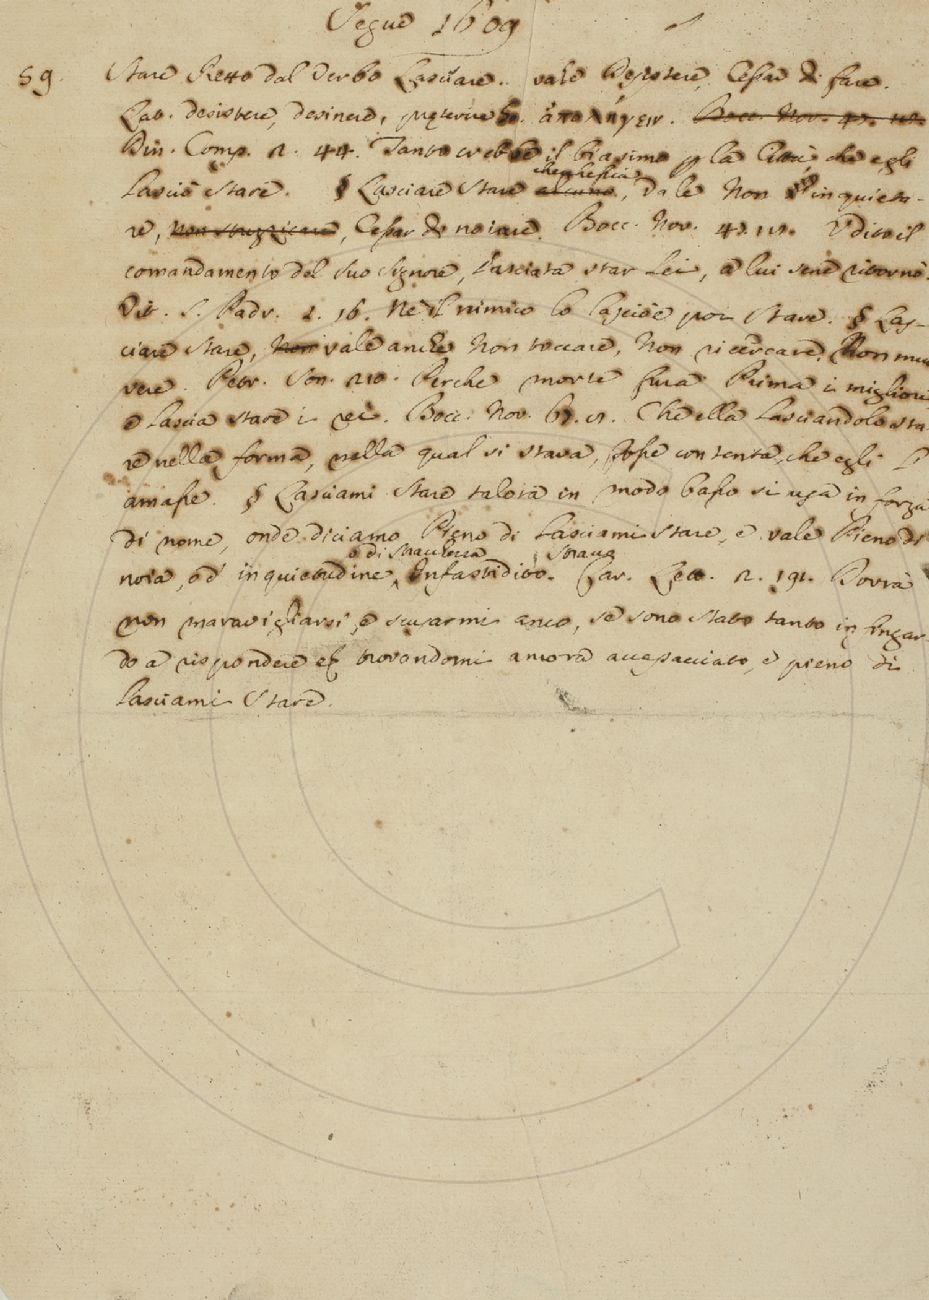 Segue 1609
59. Stare Retto dal Verbo Lasciare. vale Desistere, Cessar di fare.
Lat. desistere, desinere, ἀπολήγειν. Bocc. Nov. 47.
Din. Comp. 2. 44. Tanto crebbe il biasimo p la Città, che egli
che che sia
lasciò stare. § Lasciare stare alcuno, vale Non inquieta-
re, non stuzzicare, Cessar di noiare. Bocc. Nov. Udito il
comandamento del suo signore, lasciata star lei, a lui sene ritornò.
Vit. S. Padr. 2. 16. Nè il nimico lo lasciòe poi stare. § Las-
ciare stare, Non vale anche Non toccare, Non ricercare, Non muo
vere. Petr. Son. 210. Perche morte fura Prima i migliori
e lascia stare i rei. Bocc. Nov. Che ella lasciandolo sta
re nella forma, nella qual si stava, fosse contenta, che egli l'
amasse. § Lasciami stare talora in modo basso si usa in forza
di nome, onde diciamo Pieno di Lasciami stare, e vale Pieno di
o di stracchezza, Stracco
noia, o d'inquietudine, Infastidito. Car. Lett. 2. 191. Dovrà
non maravigliarsi, e scusarmi anco, se sono stato tanto infingar
do a rispondere trovandomi ancora accasacciato, e pieno di
lasciami stare.